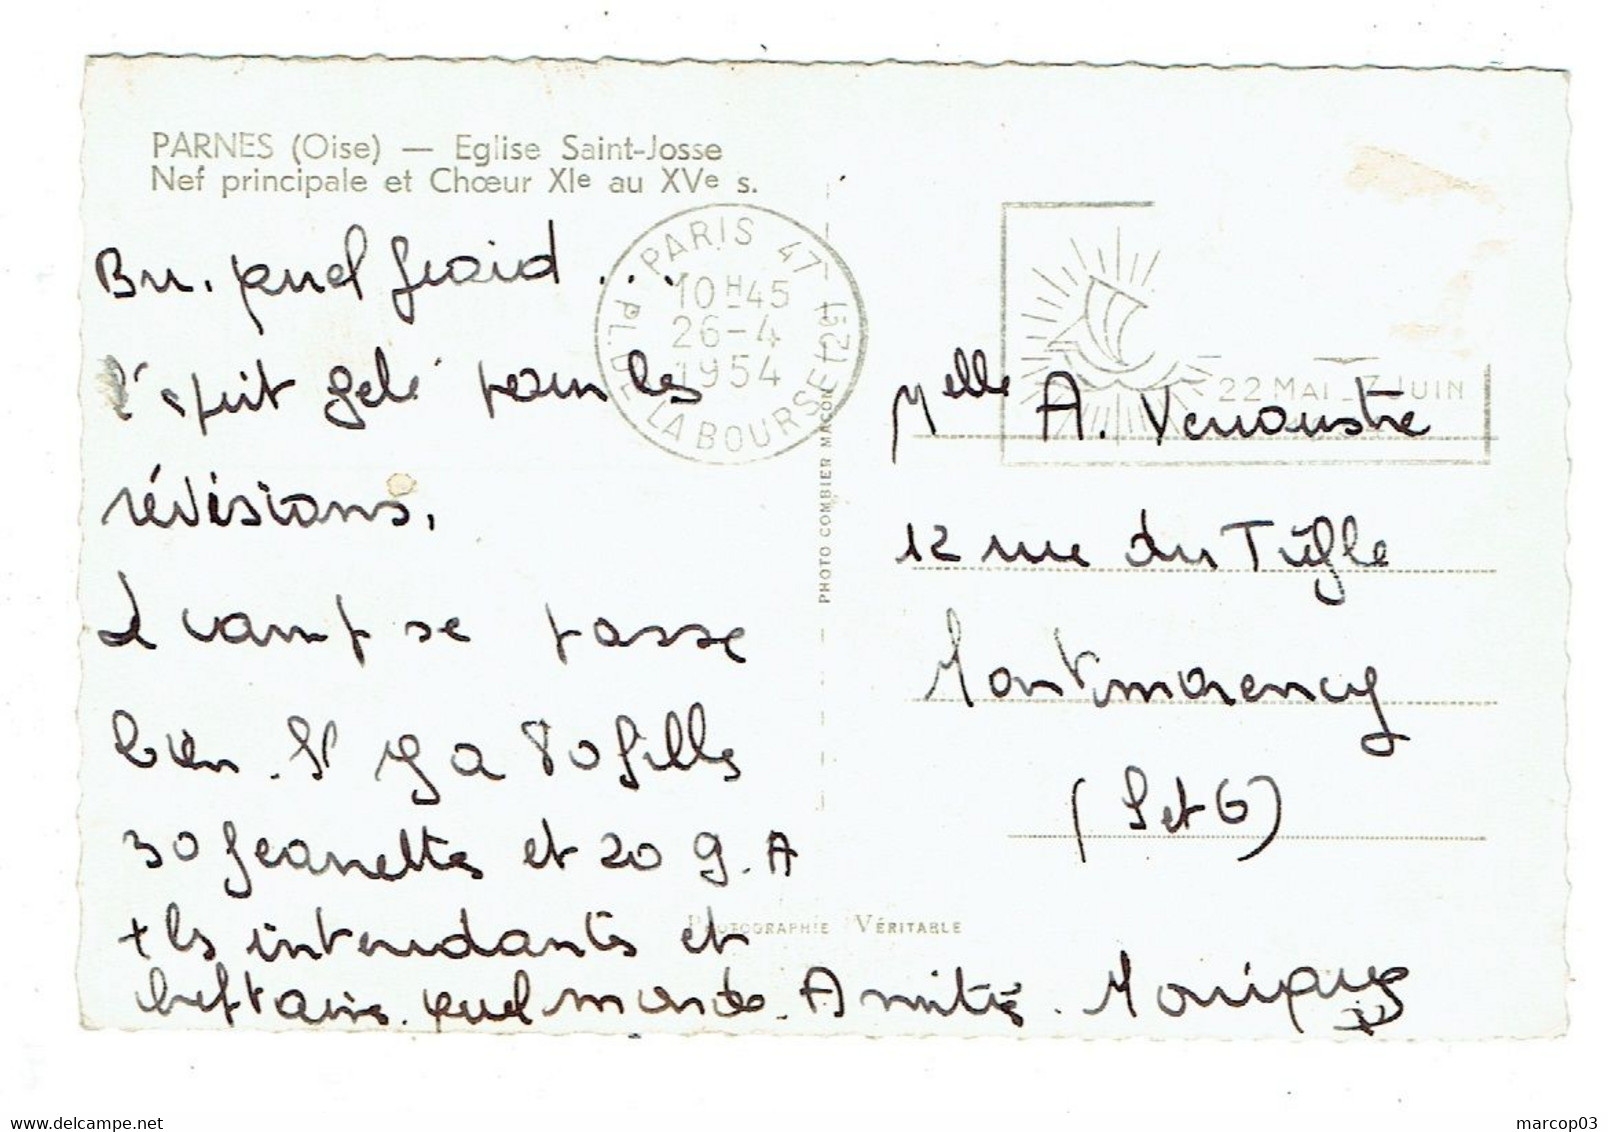 PARNES (Oise) — Eglise Saint-Josse
Nef principale et Chœur XIe au XVe s.
PARIS 47
10H45
26-4
1954
PL. DE LA BOURSE (2e)
22 MAI _ 7 JUIN
Brr. quel froid ....
l'esprit gelé pour les
révisions.
Le camp se passe
bien. Il y a 80 filles
30 Jeanettes et 20 G.A
+ les intendantes et
cheftaines. quel monde. Amitiés. Monique
Melle A. Venoustre
12 rue du Trèfle
Montmorency
(S et O)
PHOTO COMBIER MACON
PHOTOGRAPHIE VÉRITABLE
marcop03